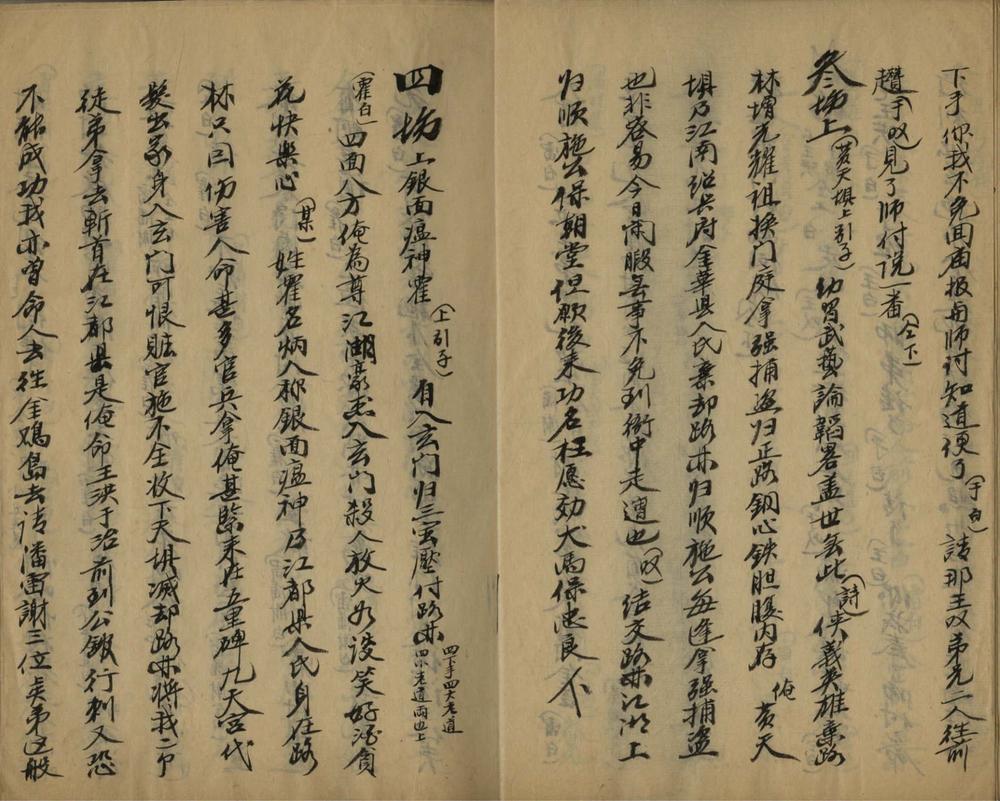 下手你我不免回庙报与师付知道便了(于白)請那王叹弟兄二人往前
趱(于叹)見了师付说一番(仝下)
叁场上(黄天埧上引子)幼習武藝論韜畧盖世無此(詩)俠義英雄棄路
林增光耀祖换门庭拿强捕盗归正路銅心鉄胆腹内存俺黄天
埧乃江南绍兴府金華县人氏棄却路林归顺施公每逢拿强捕盗
也非容易今日闲暇無事不免到衙中走遭也(叹)结交路林江湖上
归顺施公保朝堂但願後来功名旺愿効犬馬保忠良下
四场上銀面瘟神霍(上引子)自入玄门归三宝壓付路林四下手四大老道四小老道両边上
(霍白)四面八方俺為尊江湖豪杰入玄门殺人放火如谈笑好酒貪
花快樂心(某)姓霍名炳人称銀面瘟神乃江都县人氏身在路
林只因伤害人命甚多官兵拿俺甚緊来在五里碑九天宫代
髮出家身入玄门可恨賍官施不全收下天埧减却路林将我二个
徒弟拿去斬首在江都县是俺命王洪于冶前到公舘行刺又恐
不能成功我亦曾命人去往金鸡岛去请潘雷謝三位贤弟这般